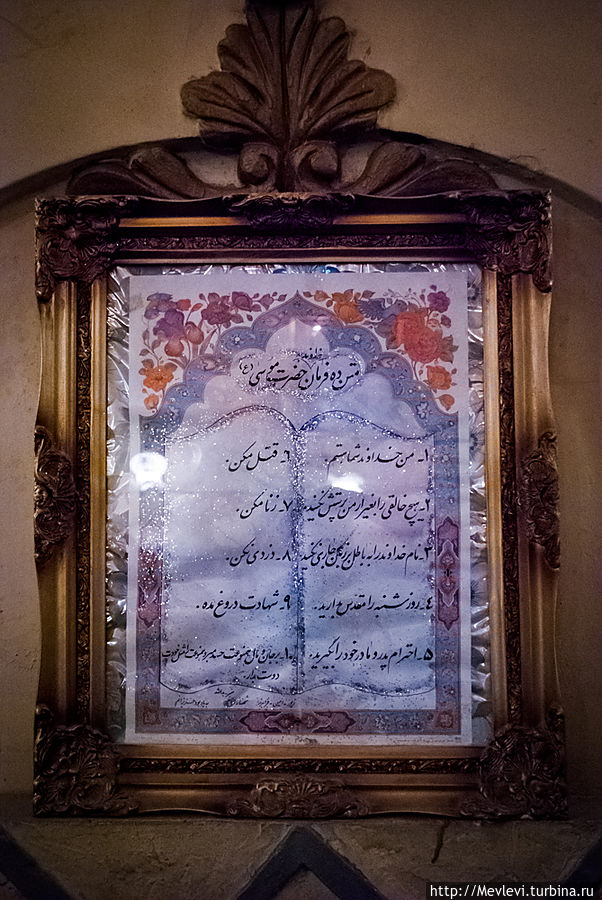 متن ده فرمان حضرت موسی (ع)
۱- من خداوند شما هستم.
۲- هیچ خالقی را بغیر از من پرستش نکنید.
۳- نام خداوند را به باطل بر زبان جاری نکنید.
۴- روز شنبه را مقدس بدارید.
۵- احترام پدر و مادر خود را بگیرید.
۶- قتل مکن.
۷- زنا مکن.
۸- دزدی مکن.
۹- شهادت دروغ مده.
۱۰-
دوست بدار.
http://Mevlevi.turbina.ru